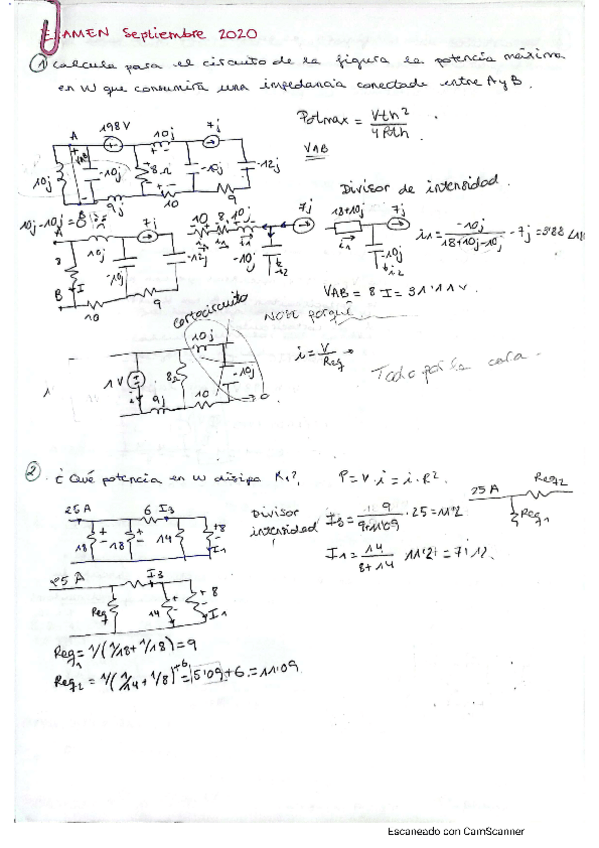 EXAMEN Septiembre 2020
① Calcula para el circuito de la figura la potencia máxima
en W que consumirá una impedancia conectada entre A y B.
198V 10j 7j
A
10j -10j 8Ω -10j -12j
9j 10 9
Potmax = Vth² / 4Rth
VAB
Divisor de intensidad.
10j-10j=0
A 7j
10j -10j -12j
8 I
B
10 9
10 8 10j 7j
-10j i2
18+10j 7j
i1 -10j i2
i1 = -10j / 18+10j-10j · 7j =
VAB = 8 I = 31'11 V.
cortocircuito
NOSE porqué
10j
1V 8Ω -10j
i 9j 10
i = V / Req
Todo por la cara.
② ¿Qué potencia en W disipa R1?
P = V·i = i·R².
25A 6 I3
18 18 14 8 I1
Divisor
intensidad
I3 = 9 / 9+11'09 · 25 = 11'2
I1 = 14 / 8+14 11'21 = 7'12.
25 A Req2
Req1
25 A I3
Req 14 8 I1
Req1 = 1/(1/18 + 1/18) = 9
Req2 = 1/(1/14 + 1/8) +6 = 5'09 + 6 = 11'09
Escaneado con CamScanner